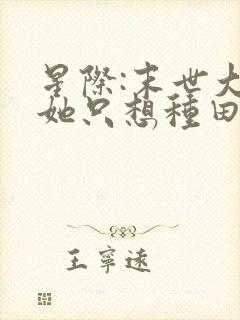 星際:末世大
她只想種田
王寧遠